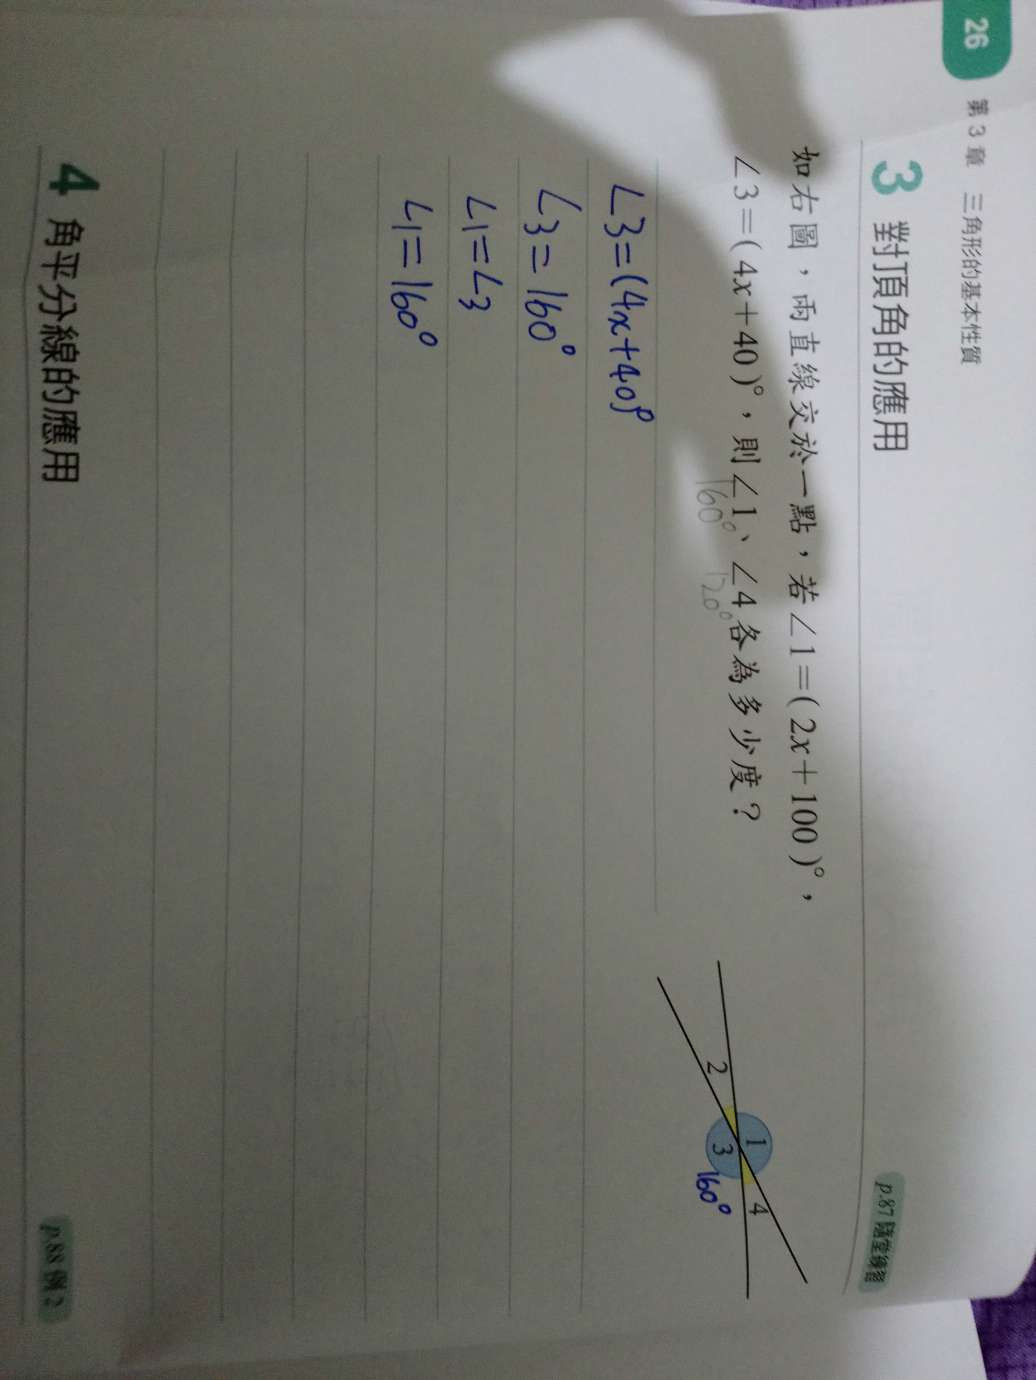 26
第3章 三角形的基本性質
3 對頂角的應用
p.87 隨堂練習
如右圖，兩直線交於一點，若∠1=(2x+100)°，
∠3=(4x+40)°，則∠1、∠4各為多少度？
160° 20°
1
2
3
4
160°
∠3=(4x+40)°
∠3=160°
∠1=∠3
∠1=160°
4 角平分線的應用
p.88 例2